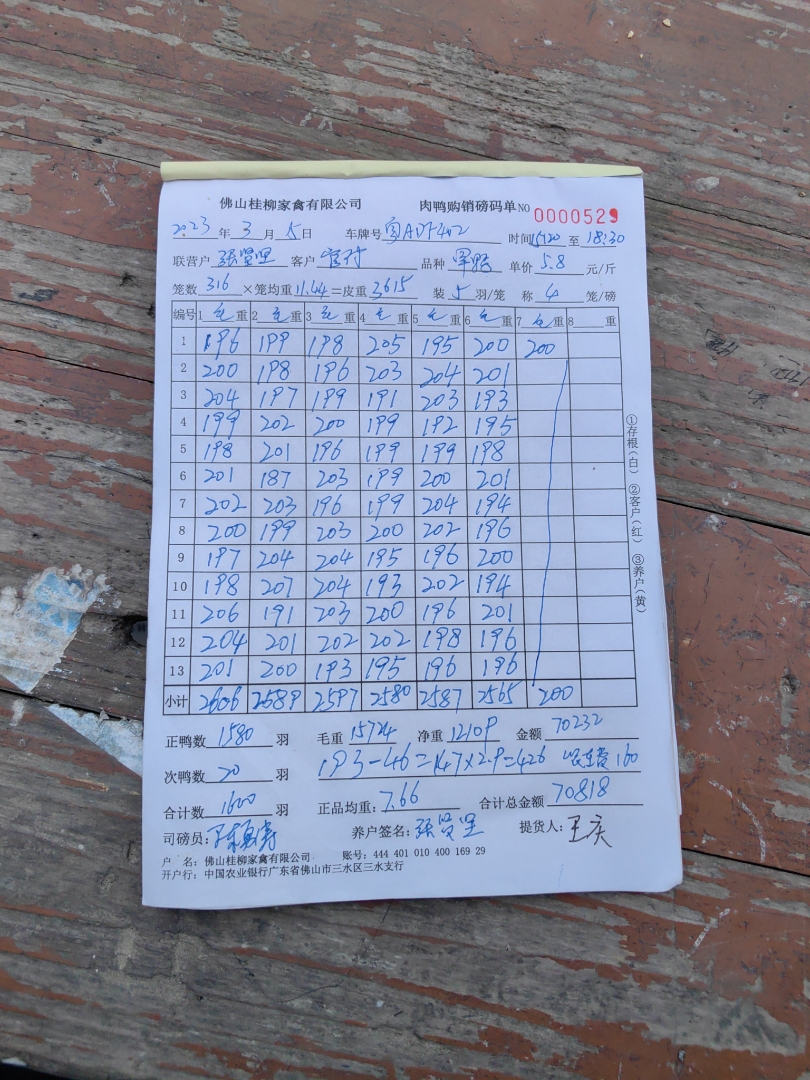 佛山桂柳家禽有限公司 肉鸭购销磅码单 NO 0000529
2023 年 3 月 5 日 车牌号 时间 15:20 至 18:30
联营户 张贤坚 客户 品种 单价 5.8 元/斤
笼数 316 ×笼均重 11.44 =皮重 3615 装 5 羽/笼 称 4 笼/磅
编号 1 毛 重 2 毛 重 3 毛 重 4 毛 重 5 毛 重 6 毛 重 7 毛 重 8 重
1 196 199 198 205 195 200 200
2 200 198 196 203 204 201
3 204 197 199 191 203 193
4 199 202 200 199 192 195
5 198 201 196 199 199 198
6 201 187 203 199 200 201
7 202 203 196 199 204 194
8 200 199 203 200 202 196
9 197 204 204 195 196 200
10 198 207 204 193 202 194
11 206 191 203 200 196 201
12 204 201 202 202 198 196
13 201 200 193 195 196 196
小计 2606 2589 2597 2580 2587 2565 200
①存根(白) ②客户(红) ③养户(黄)
正鸭数 1580 羽 毛重 15724 净重 12109 金额 70232
次鸭数 20 羽 193-46=147×2.9=426 160
合计数 1600 羽 正品均重: 7.66 合计总金额 70818
司磅员: 养户签名: 张贤坚 提货人: 王庆
户 名: 佛山桂柳家禽有限公司 账号: 444 401 010 400 169 29
开户行: 中国农业银行广东省佛山市三水区三水支行